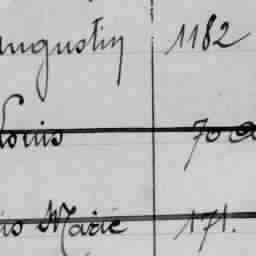 Augustin 1182
Louis 70
Marie 171.